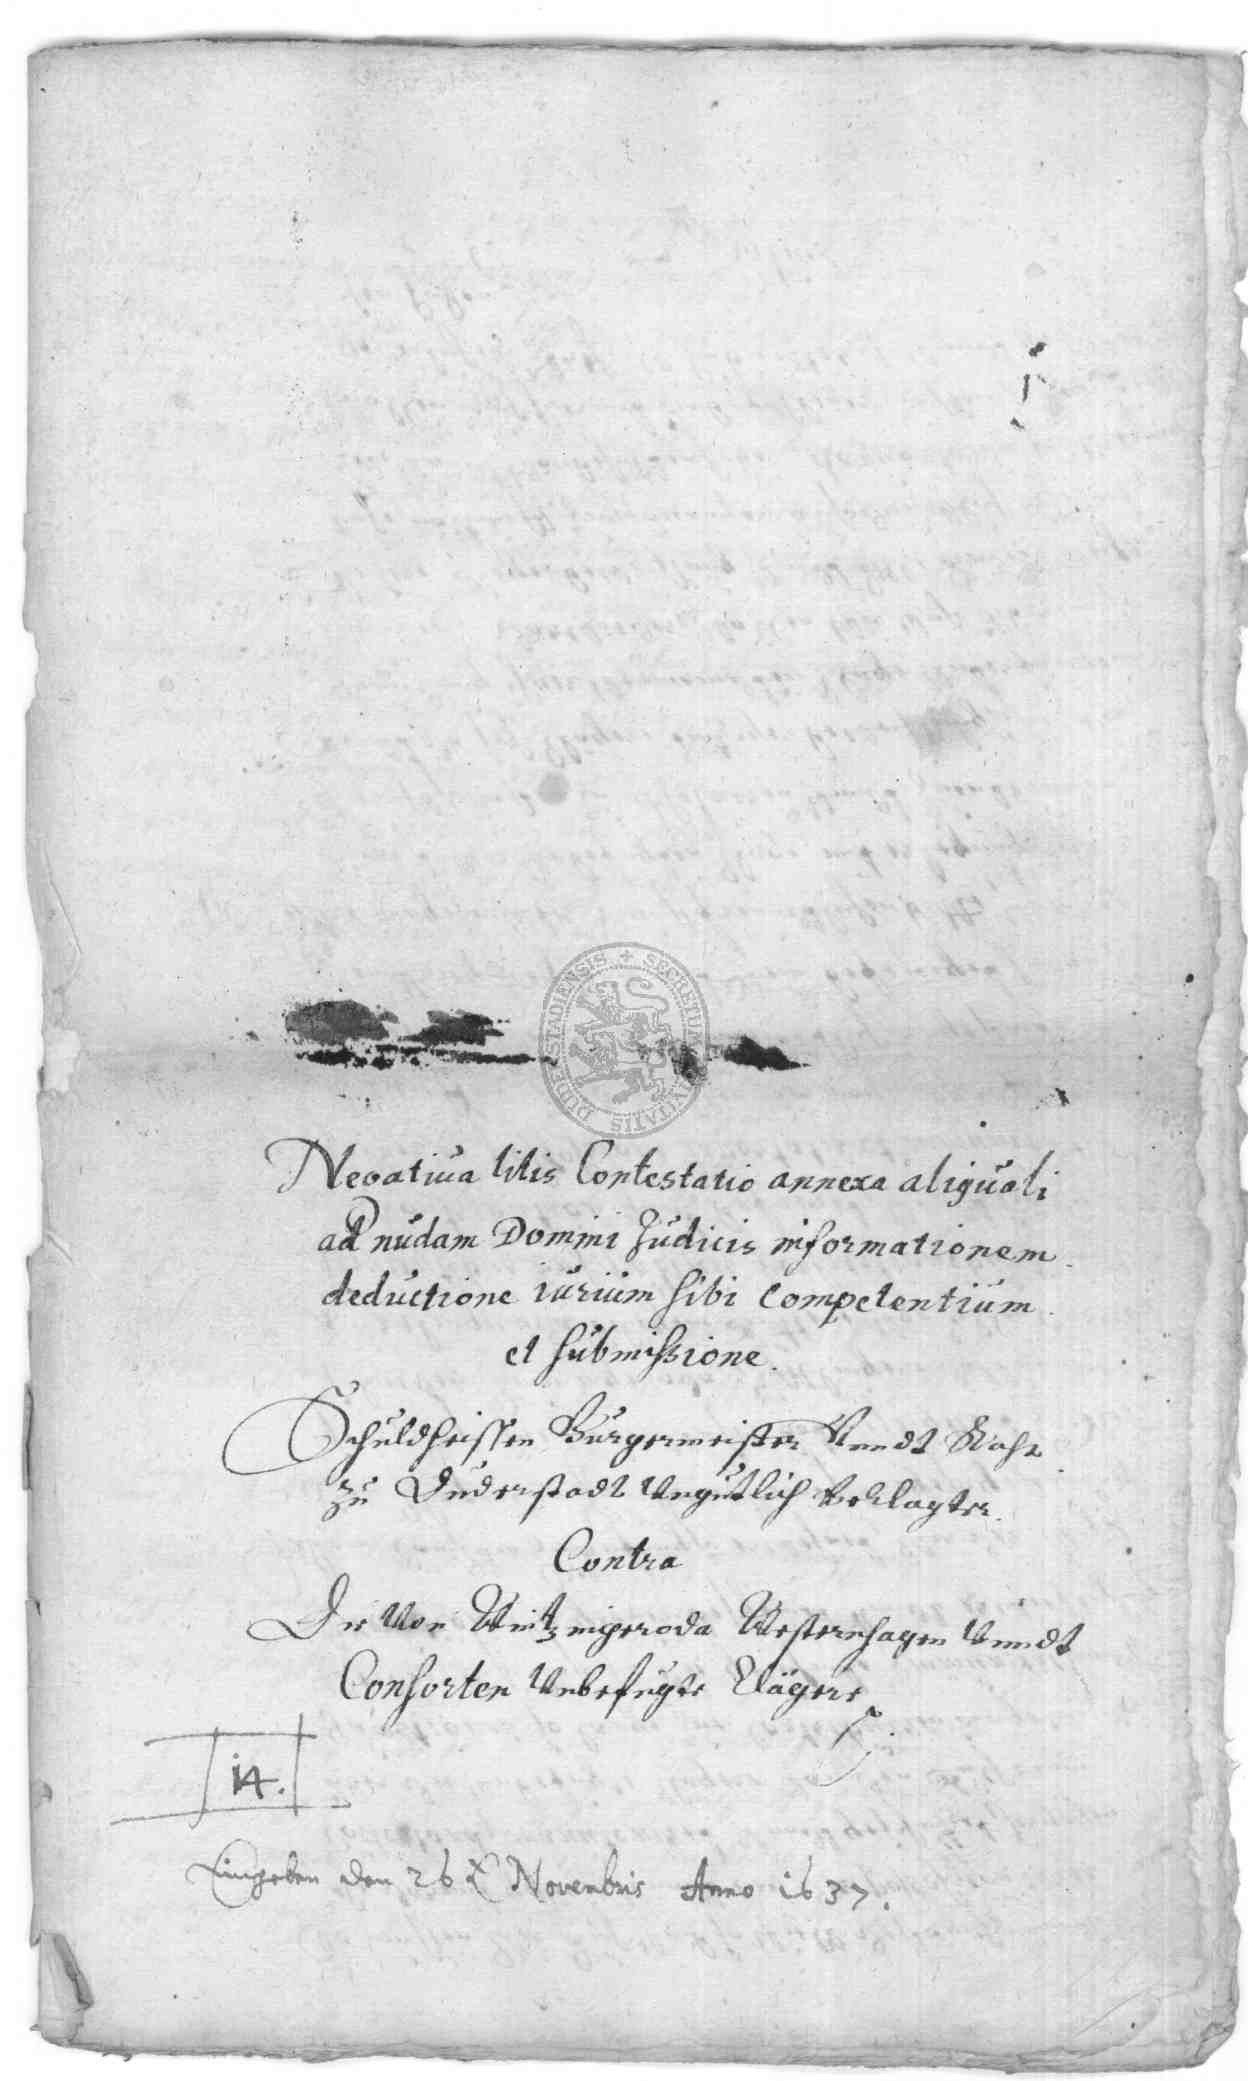 Negatiua litis Contestatio annexa aliquali
ad nudam Domini Judicis informationem
deductione iurium sibi competentium
et submissione.
Schuldheissen Bürgermeister Vnndt Raht
zu Duderstadt Vngütlich Beklagter
Contra
Die Von Wintzingeroda Westernhagen Vnndt
Consorten Vnbefugte Clägere
14.
Eingeben den 26 Novembris Anno 1637.
SECRETUM CIVITATIS DUDERSTADIENSIS